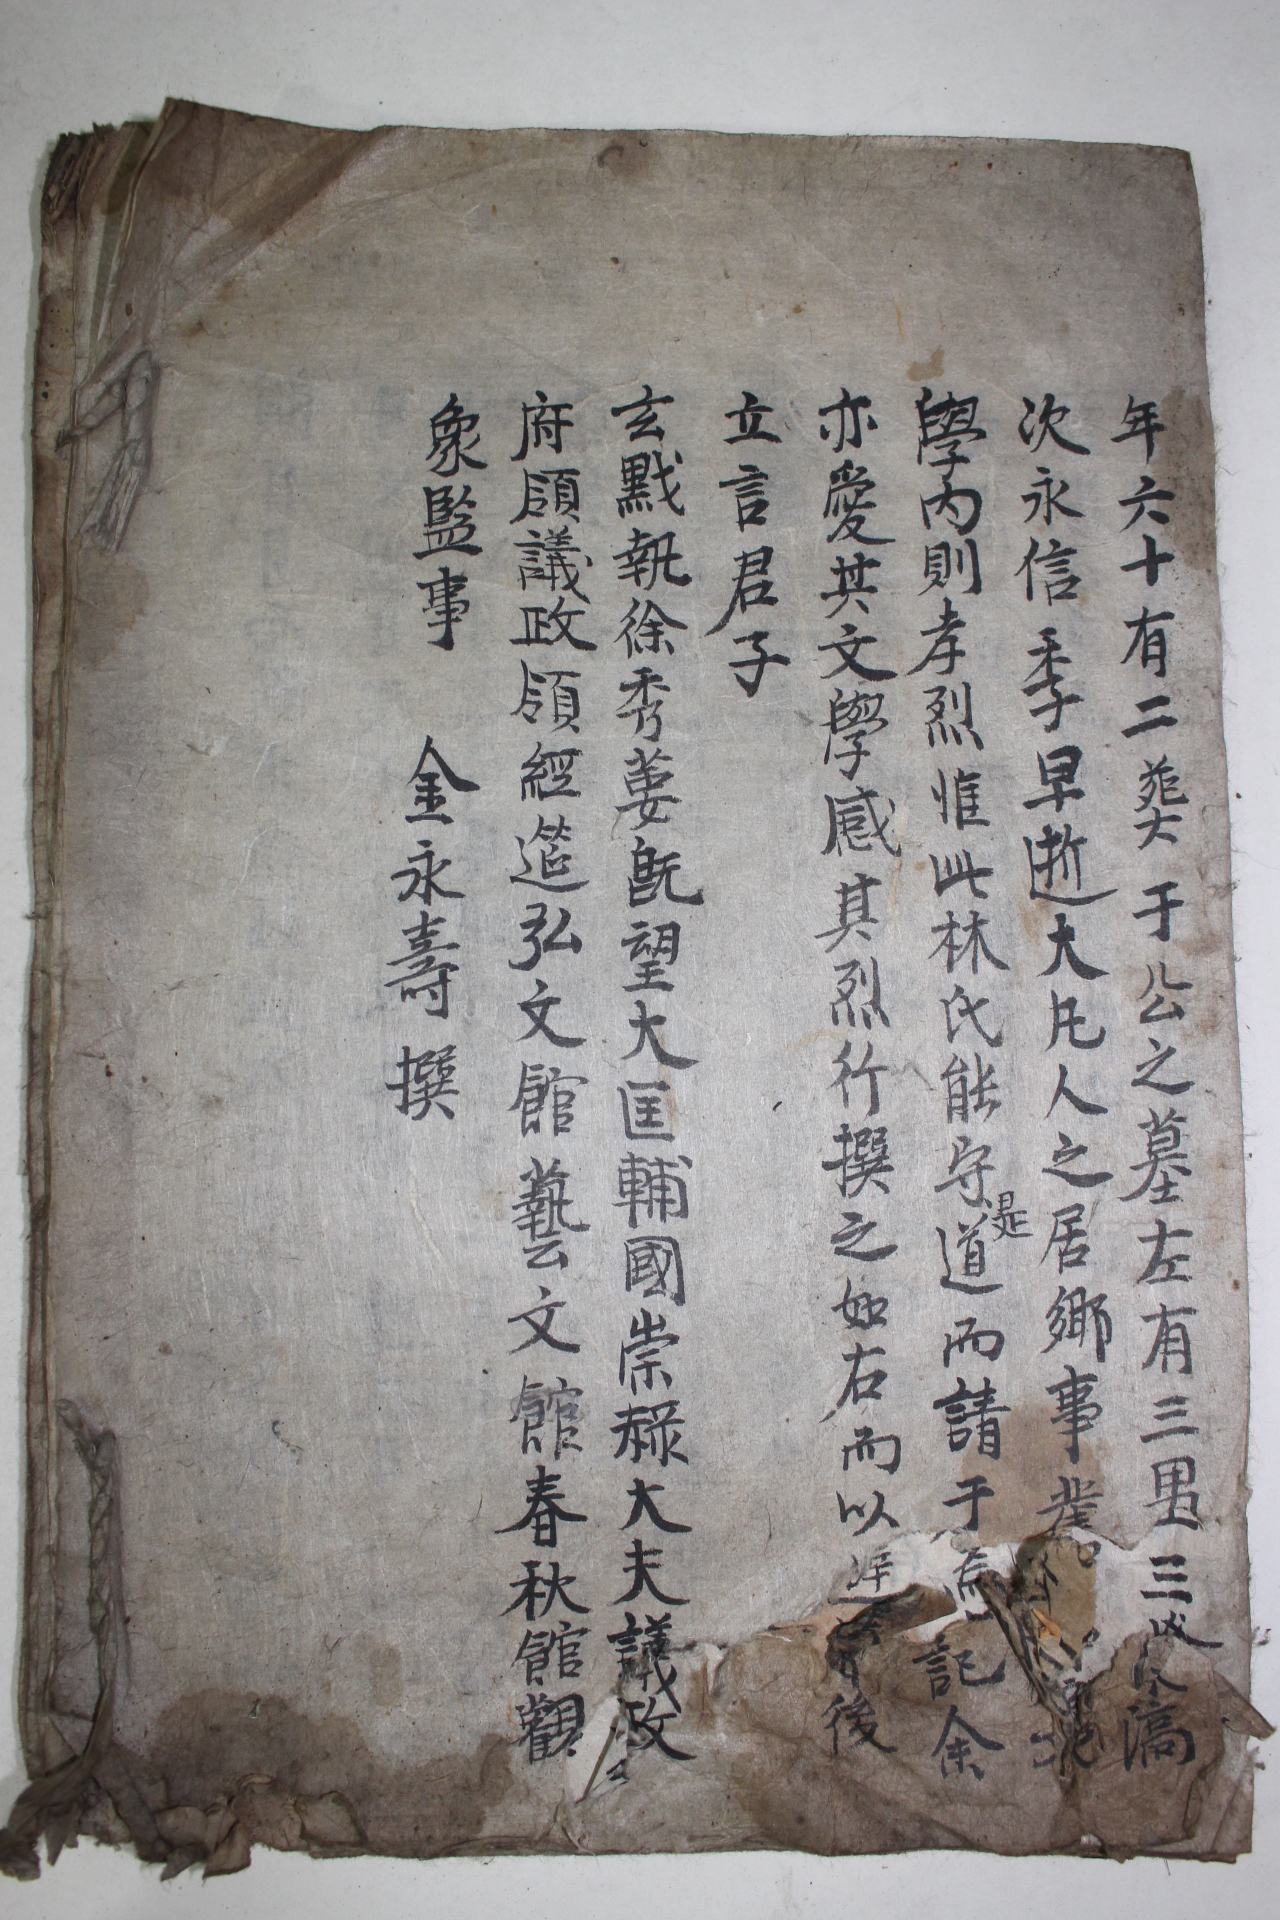 年六十有二葬于公之墓左有三男三漪
次永信季早逝大凡人之居鄉事業
學內則孝烈惟此林氏能守是道而請于記余
亦愛其文學感其烈行撰之如右而以後
立言君子
玄黓執徐秀葽旣望大匡輔國崇祿大夫議政
府領議政領經筵弘文館藝文館春秋館觀
象監事 金永壽 撰